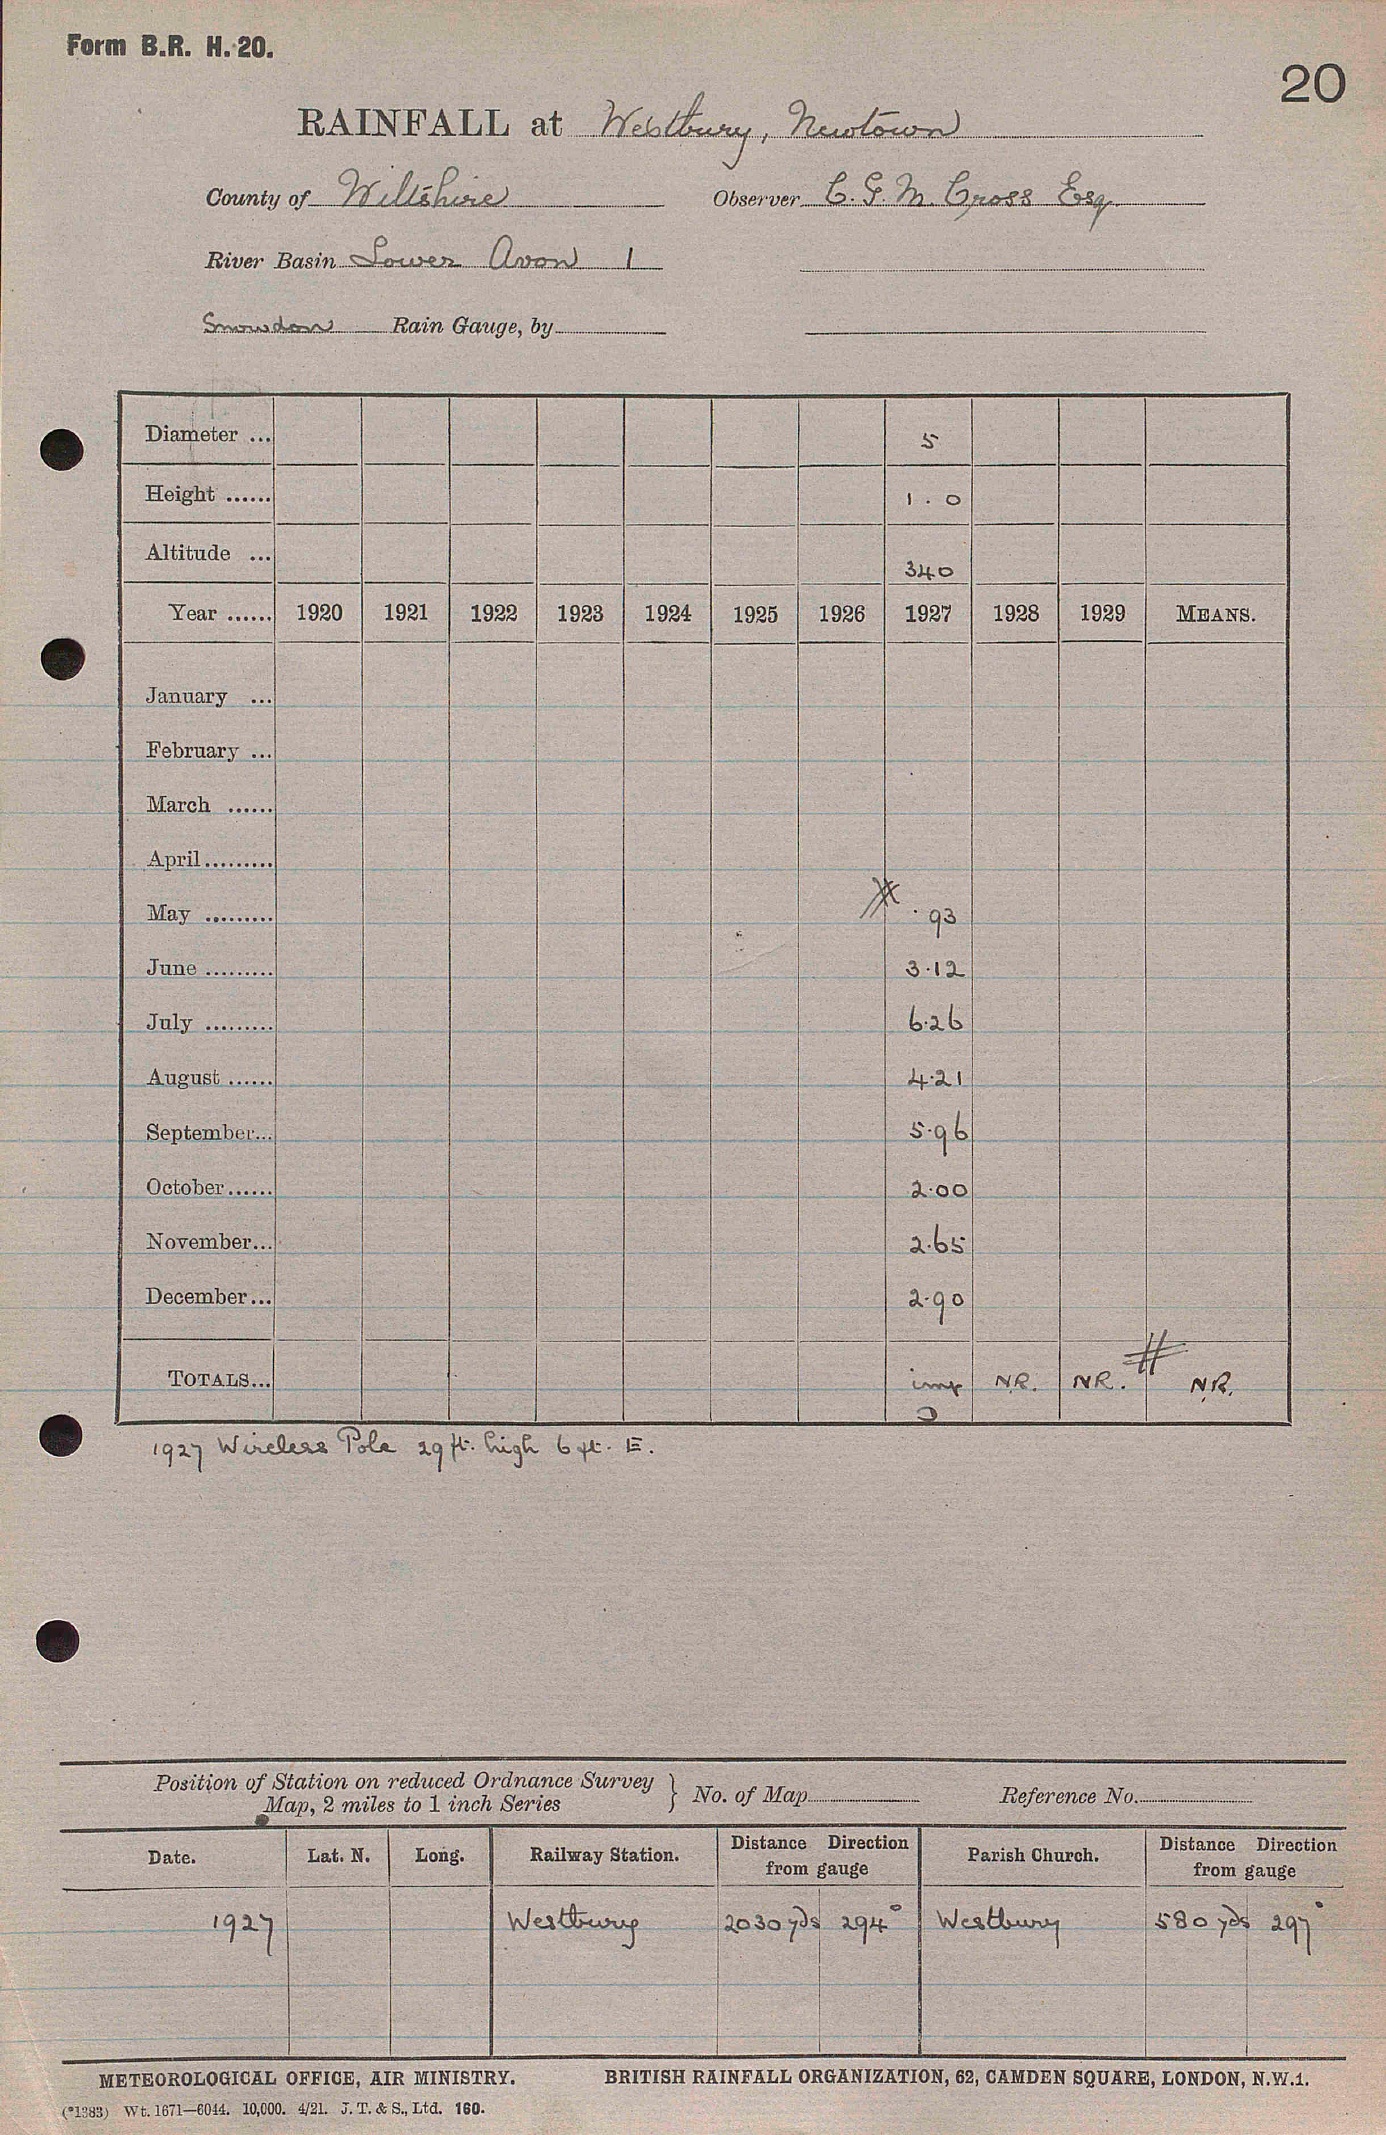 Form B.R. H. 20.
20
RAINFALL at Westbury, Newtown
County of Wiltshire Observer C. G. M. Cross Esq.
River Basin Lower Avon 1
Snowdon Rain Gauge, by
Diameter ... 5
Height ...... 1.0
Altitude ... 340
Year ...... 1920 1921 1922 1923 1924 1925 1926 1927 1928 1929 MEANS.
January ...
February ...
March ......
April.........
May ......... .93
June ......... 3.12
July ......... 6.26
August ...... 4.21
September... 5.96
October...... 2.00
November... 2.65
December... 2.90
TOTALS... imp N.R. N.R. N.R.
1927 Wireless Pole 29 ft. high 6 ft. E.
Position of Station on reduced Ordnance Survey
Map, 2 miles to 1 inch Series } No. of Map Reference No.
Date. Lat. N. Long. Railway Station. Distance Direction from gauge Parish Church. Distance Direction from gauge
1927 Westbury 2030 yds 294° Westbury 580 yds 297°
METEOROLOGICAL OFFICE, AIR MINISTRY. BRITISH RAINFALL ORGANIZATION, 62, CAMDEN SQUARE, LONDON, N.W.1.
(*1383) Wt. 1671—6044. 10,000. 4/21. J. T. & S., Ltd. 160.